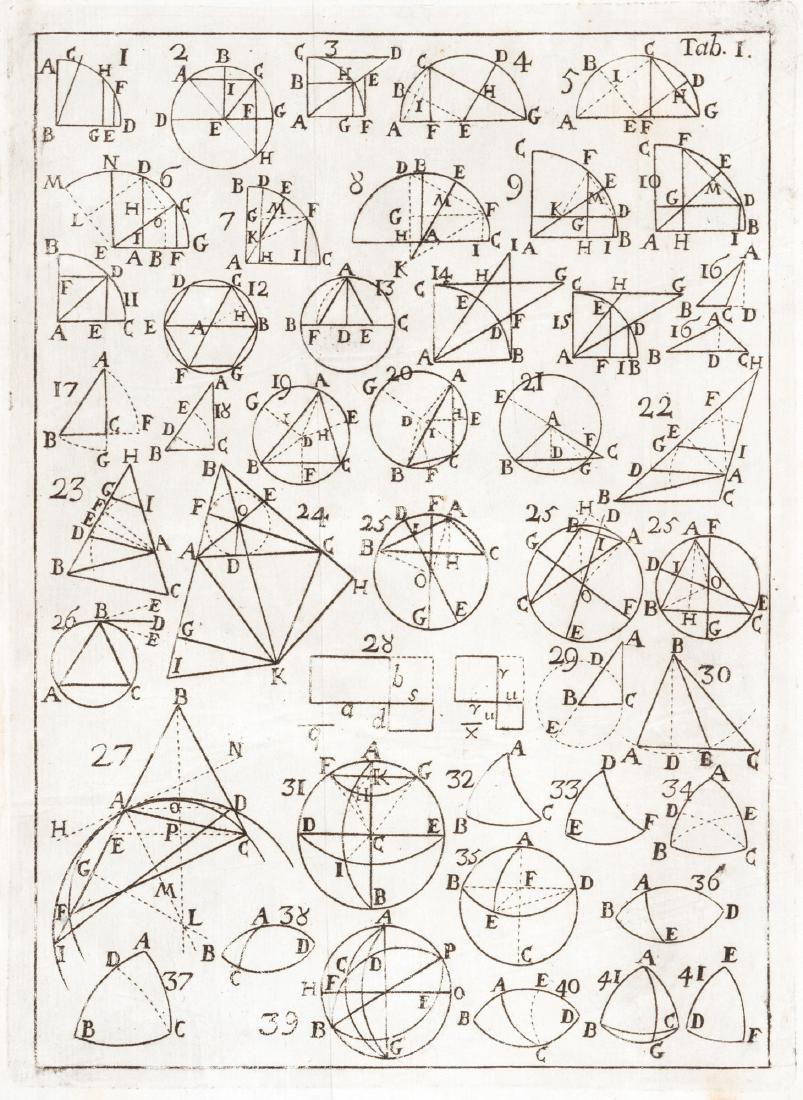 Tab. I.
A C 1 H F B G E D
2 B A C I D E F G H
3 C D B H E A G F
4 C D B I H A F E G
5 B C I D H A E F G
6 N D M H C L O E I A B F G
7 B D E G M F K A H I C
8 D B E M G F H A I C K
9 C F E M K G D A H I B
10 C F E G M D A H I B
B D F 11 A E C
12 D C H E A B F G
A 13 B F D E C
14 I H G C E D F A B
C H G E 15 D A F I B
16 A B C D
16 A B D C
17 A B C F G
A E 18 D B C
19 A G I E D H B C F
20 A G D I H E B F C
21 E A F B D G C
22 H F E G I D A B C
23 H G F I E D A B C
B E F O 24 A D C H G I K
25 D F A I B H C O G E
25 H D B A G I O C F E
25 A F D I O B H G C E
26 B E D E A C
27 B N A O D H E P C G M F L I B
28 b s a d q
r u r u x
29 A D B C E
30 B A D E C
31 A F K G H D C E I B
32 A B C
33 D E F
34 A D E B C
35 A B F D E C
36 A B D E
37 A D B C
38 A D B C
39 A P C D H F E O B G
40 A E B D C
41 A B C G
41 E D F